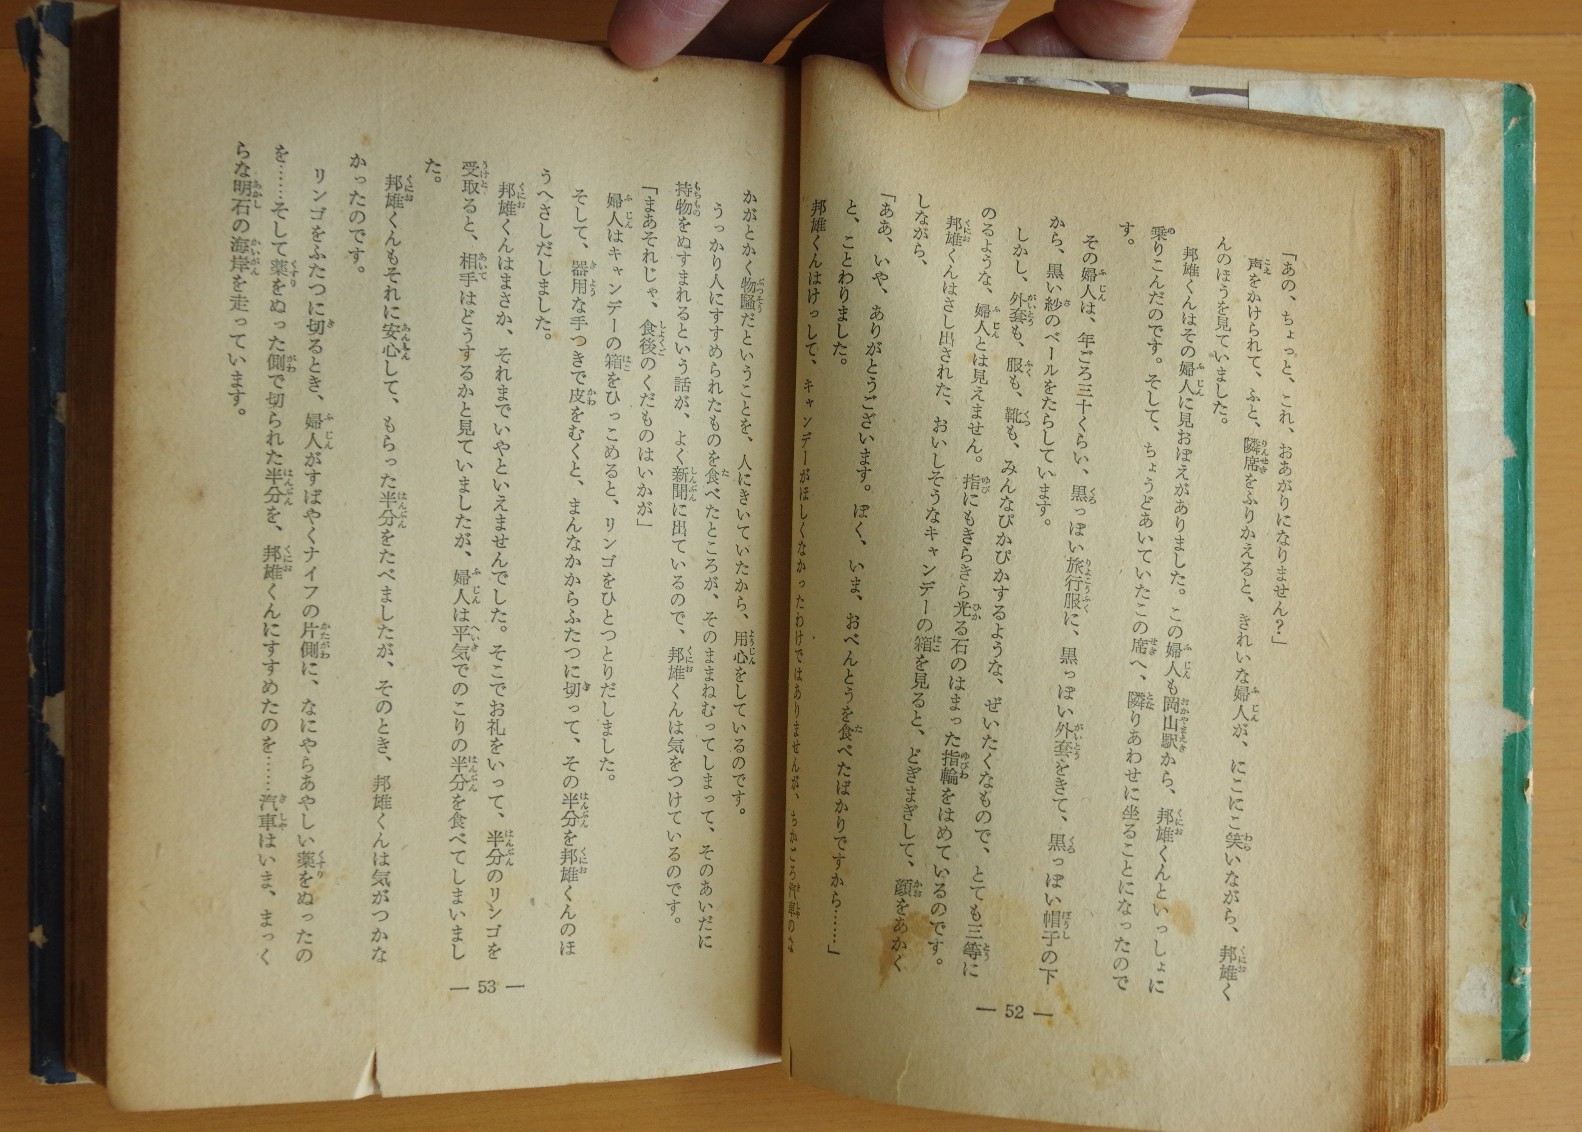 「あの、ちょっと、これ、おあがりになりません？」
声をかけられて、ふと、隣席をふりかえると、きれいな婦人が、にこにこ笑いながら、邦雄く
んのほうを見ていました。
邦雄くんはその婦人に見おぼえがありました。この婦人も岡山駅から、邦雄くんといっしょに
乗りこんだのです。そして、ちょうどあいていたこの席へ、隣りあわせに坐ることになったので
す。
その婦人は、年ごろ三十くらい、黒っぽい旅行服に、黒っぽい外套をきて、黒っぽい帽子の下
から、黒い紗のベールをたらしています。
しかし、外套も、服も、靴も、みんなぴかぴかするような、ぜいたくなもので、とても三等に
のるような、婦人とは見えません。指にもきらきら光る石のはまった指輪をはめているのです。
邦雄くんはさし出された、おいしそうなキャンデーの箱を見ると、どぎまぎして、顔をあかく
しながら、
「ああ、いや、ありがとうございます。ぼく、いま、おべんとうを食べたばかりですから……」
と、ことわりました。
邦雄くんはけっして、キャンデーがほしくなかったわけではありませんが、ちかごろ汽車のな
— 52 —
かがとかく物騒だということを、人にきいていたから、用心をしているのです。
うっかり人にすすめられたものを食べたところが、そのままねむってしまって、そのあいだに
持物をぬすまれるという話が、よく新聞に出ているので、邦雄くんは気をつけているのです。
「まあそれじゃ、食後のくだものはいかが」
婦人はキャンデーの箱をひっこめると、リンゴをひとつとりだしました。
そして、器用な手つきで皮をむくと、まんなかからふたつに切って、その半分を邦雄くんのほ
うへさしだしました。
邦雄くんはまさか、それまでいやといえませんでした。そこでお礼をいって、半分のリンゴを
受取ると、相手はどうするかと見ていましたが、婦人は平気でのこりの半分を食べてしまいまし
た。
邦雄くんもそれに安心して、もらった半分をたべましたが、そのとき、邦雄くんは気がつかな
かったのです。
リンゴをふたつに切るとき、婦人がすばやくナイフの片側に、なにやらあやしい薬をぬったの
を……そして薬をぬった側で切られた半分を、邦雄くんにすすめたのを……汽車はいま、まっく
らな明石の海岸を走っています。
— 53 —